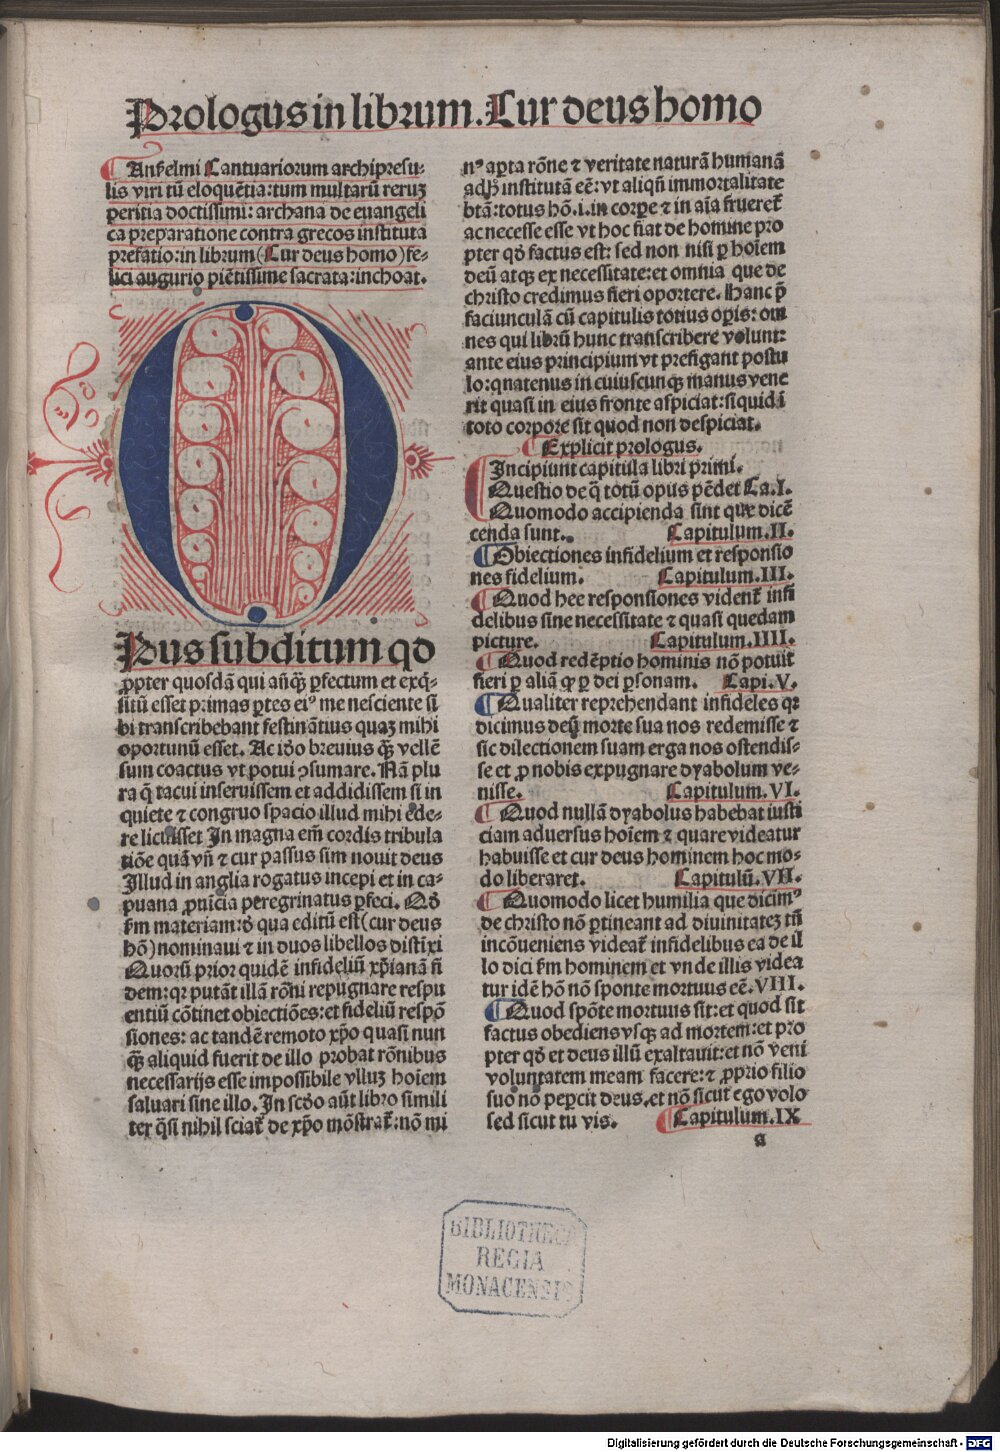 Prologus in librum. Cur deus homo
Anshelmi Cantuariorum archipresu-
lis viri tū eloquētia: tum multarū reruꝫ
peritia doctissimi: archana de euangeli
ca preparatione contra grecos instituta
prefatio: in librum (Cur deus homo) fe-
lici augurio piētissime sacrata: inchoat.
O
Pus subditum qd
ꝓpter quosdā qui añꝙ̄ ꝑfectum et exq̄-
situ̅ esset primas ꝑtes eiꝰ me nesciente si
bi transcribebant festinātius quaꝫ mihi
oportunū esset. Ac iđo breuius ꝙ̄ vellē
sum coactus vt potui ꝯsumare. Nā plu
ra q̄ tacui inseruissem et addidissem si in
quiete ⁊ congruo spacio illud mihi ede-
re licuisset In magna em̄ cordis tribula
tiōe quā vn̄ ⁊ cur passus sim nouit deus
Illud in anglia rogatus incepi et in ca-
puana ꝓuicia peregrinatus ꝑfeci. Qđ
km̄ materiam: đ qua editū est (cur deus
hō) nominaui ⁊ in duos libellos distīxi
Quorū prior quidē infideliū xp̄ianā fi
dem: qꝛ putāt illā rōni repugnare respu
entiū cōtinet obiectiōes: et fideliū respō
siones: ac tandē remoto xp̄o quasi nun
ꝙ̄ aliquid fuerit de illo probat rōnibus
necessarijs esse impossibile vlluꝫ hoīem
saluari sine illo. In scđo aūt libro simili
ter q̄si nihil sciat̄ de xp̄o mōstrat̄: nō mi
nꝰ aꝑta rōne ⁊ veritate naturā humanā
adꝫ institutā eē: vt aliqn̄ immortalitate
btā: totus hō .i. in corꝑe ⁊ in aīa frueret̄
ac necesse esse vt hoc fiat de homine pro
pter qđ factus est: sed non nisi ꝑ hoīem
deū atqꝫ ex necessitate: et omnia que de
christo credimus fieri oportere. Hanc p̄
faciunculā cū capitulis totius oꝑis: om
nes qui librū hunc transcribere volunt:
ante eius principium vt prefigant postu
lo: quatenus in cuiuscunqꝫ manus vene
rit quasi in eius fronte aspiciat: si quid ī
toto corpore sit quod non despiciat.
Explicit prologus.
Incipiunt capitula libri primi.
Questio de q̄ totū opus pēdet Ca. I.
Quomodo accipienda sint que dicē
cenda sunt. Capitulum. II.
Obiectiones infidelium et responsio
nes fidelium. Capitulum. III.
Quod hee responsiones vident̄ infi
delibus sine necessitate ⁊ quasi quedam
picture. Capitulum. IIII.
Quod redēptio hominis nō potuit
fieri ꝑ aliā ꝙ ꝑ dei ꝑsonam. Capi. V.
Qualiter reprehendant infideles qꝛ
dicimus deū morte sua nos redemisse ⁊
sic dilectionem suam erga nos ostendis-
se et ꝓ nobis expugnare dyabolum ve-
nisse. Capitulum. VI.
Quod nullā dyabolus habebat iusti
ciam aduersus hoīem ⁊ quare videatur
habuisse et cur deus hominem hoc mo-
do liberaret. Capitulū. VII.
Quomodo licet humilia que dicimꝰ
de christo nō ꝑtineant ad diuinitateꝫ tn̄
incōueniens videat̄ infidelibus ea de il
lo dici km̄ hominem et vnde illis videa
tur idē hō nō sponte mortuus eē. VIII.
Quod spōte mortuus sit: et quod sit
factus obediens vsqꝫ ad mortem: et pro
pter qđ et deus illū exaltauit: et nō veni
voluntatem meam facere: ⁊ ꝓprio filio
suo nō peꝑcit deus. et nō sicut ego volo
sed sicut tu vis. Capitulum. IX
a
BIBLIOTHECA
REGIA
MONACENSIS
Digitalisierung gefördert durch die Deutsche Forschungsgemeinschaft - DFG